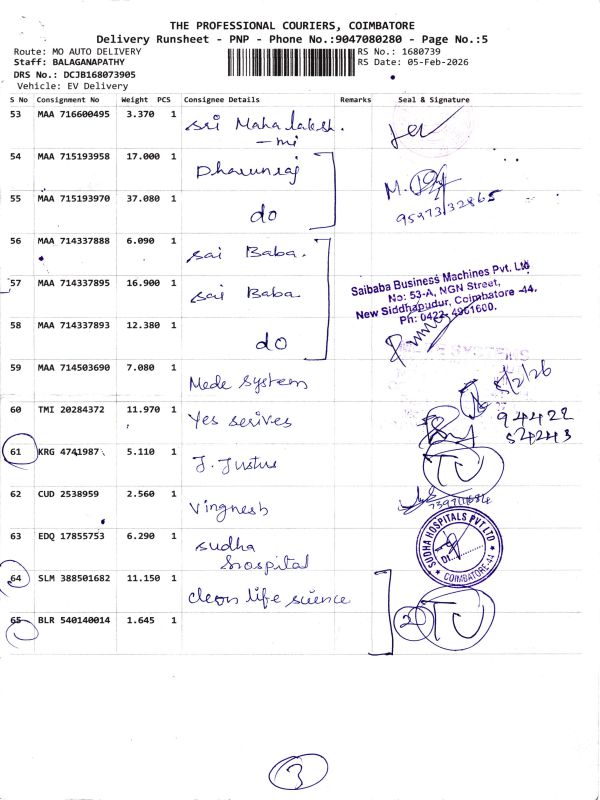 THE PROFESSIONAL COURIERS, COIMBATORE
Delivery Runsheet - PNP - Phone No.:9047080280 - Page No.:5
Route: MO AUTO DELIVERY RS No.: 1680739
Staff: BALAGANAPATHY RS Date: 05-Feb-2026
DRS No.: DCJB168073905
Vehicle: EV Delivery
S No Consignment No Weight PCS Consignee Details Remarks Seal & Signature
53 MAA 716600495 3.370 1 Sri Mahalaksh.
-mi
54 MAA 715193958 17.000 1 Dharunraj
M.
55 MAA 715193970 37.080 1 do
9597332865
56 MAA 714337888 6.090 1 Sai Baba.
57 MAA 714337895 16.900 1 Sai Baba
Saibaba Business Machines Pvt. Ltd
No: 53-A, NGN Street,
New Siddhapudur, Coimbatore -44.
Ph: 0422- 4961600.
58 MAA 714337893 12.380 1 do
59 MAA 714503690 7.080 1 Mede System
5/2/26
60 TMI 20284372 11.970 1 Yes serives
94422
54243
61 KRG 4741987 5.110 1 J. Justus
TU
62 CUD 2538959 2.560 1 Vingnesh
63 EDQ 17855753 6.290 1 Sudha
Hospital
SUDHA HOSPITALS PVT LTD
COIMBATORE-44
64 SLM 388501682 11.150 1 Clean life science
65 BLR 540140014 1.645 1
2 TU
3